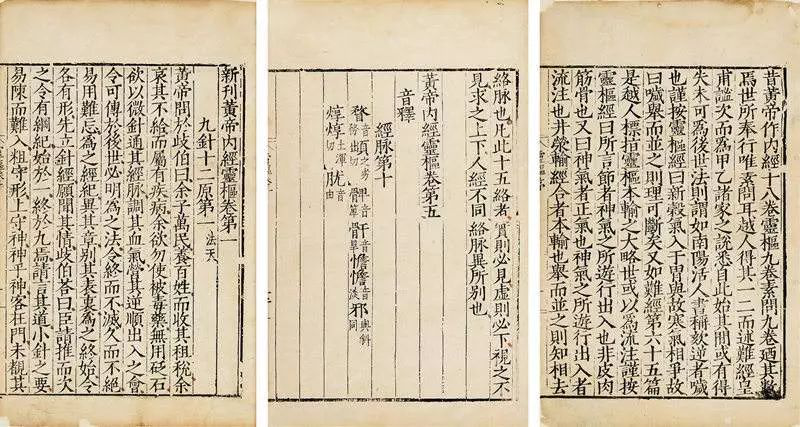 昔黃帝作内經十八卷靈樞九卷素問九卷廼其數
焉世所奉行唯素問耳越人得其一二而述難經皇
甫謐次而為甲乙諸家之說悉自此始其間或有得
失未可為後世法則謂如南陽活人書稱欬逆者噦
也謹按靈樞經曰新穀氣入于胃與故寒氣相爭故
曰噦舉而並之則理可斷矣又如難經第六十五篇
是越人標指靈樞本輸之大略世或以為流注謹按
靈樞經曰所言節者神氣之所遊行出入也非皮肉
筋骨也又曰神氣者正氣也神氣之所遊行出入者
流注也井滎輸經合者本輸也舉而並之則知相去
絡脉也凡此十五絡者實則必見虛則必下視之不
見求之上下人經不同絡脉異所別也
黃帝内經靈樞卷第五
音釋
經脉第十
憺憺音淡邪音與斜同
焞焞土渾切音由
新刊黃帝内經靈樞卷第一
九針十二原第一 法天
黃帝問於歧伯曰余子萬民養百姓而收其租稅余
哀其不給而屬有疾病余欲勿使被毒藥無用砭石
欲以微針通其經脉調其血氣營其逆順出入之會
令可傳於後世必明為之法令終而不滅久而不絕
易用難忘為之經紀異其章別其表裏為之終始令
各有形先立針經願聞其情歧伯荅曰臣請推而次
之令有綱紀始於一終於九焉請言其道小針之要
易陳而難入粗守形上守神神乎神客在門未覩其